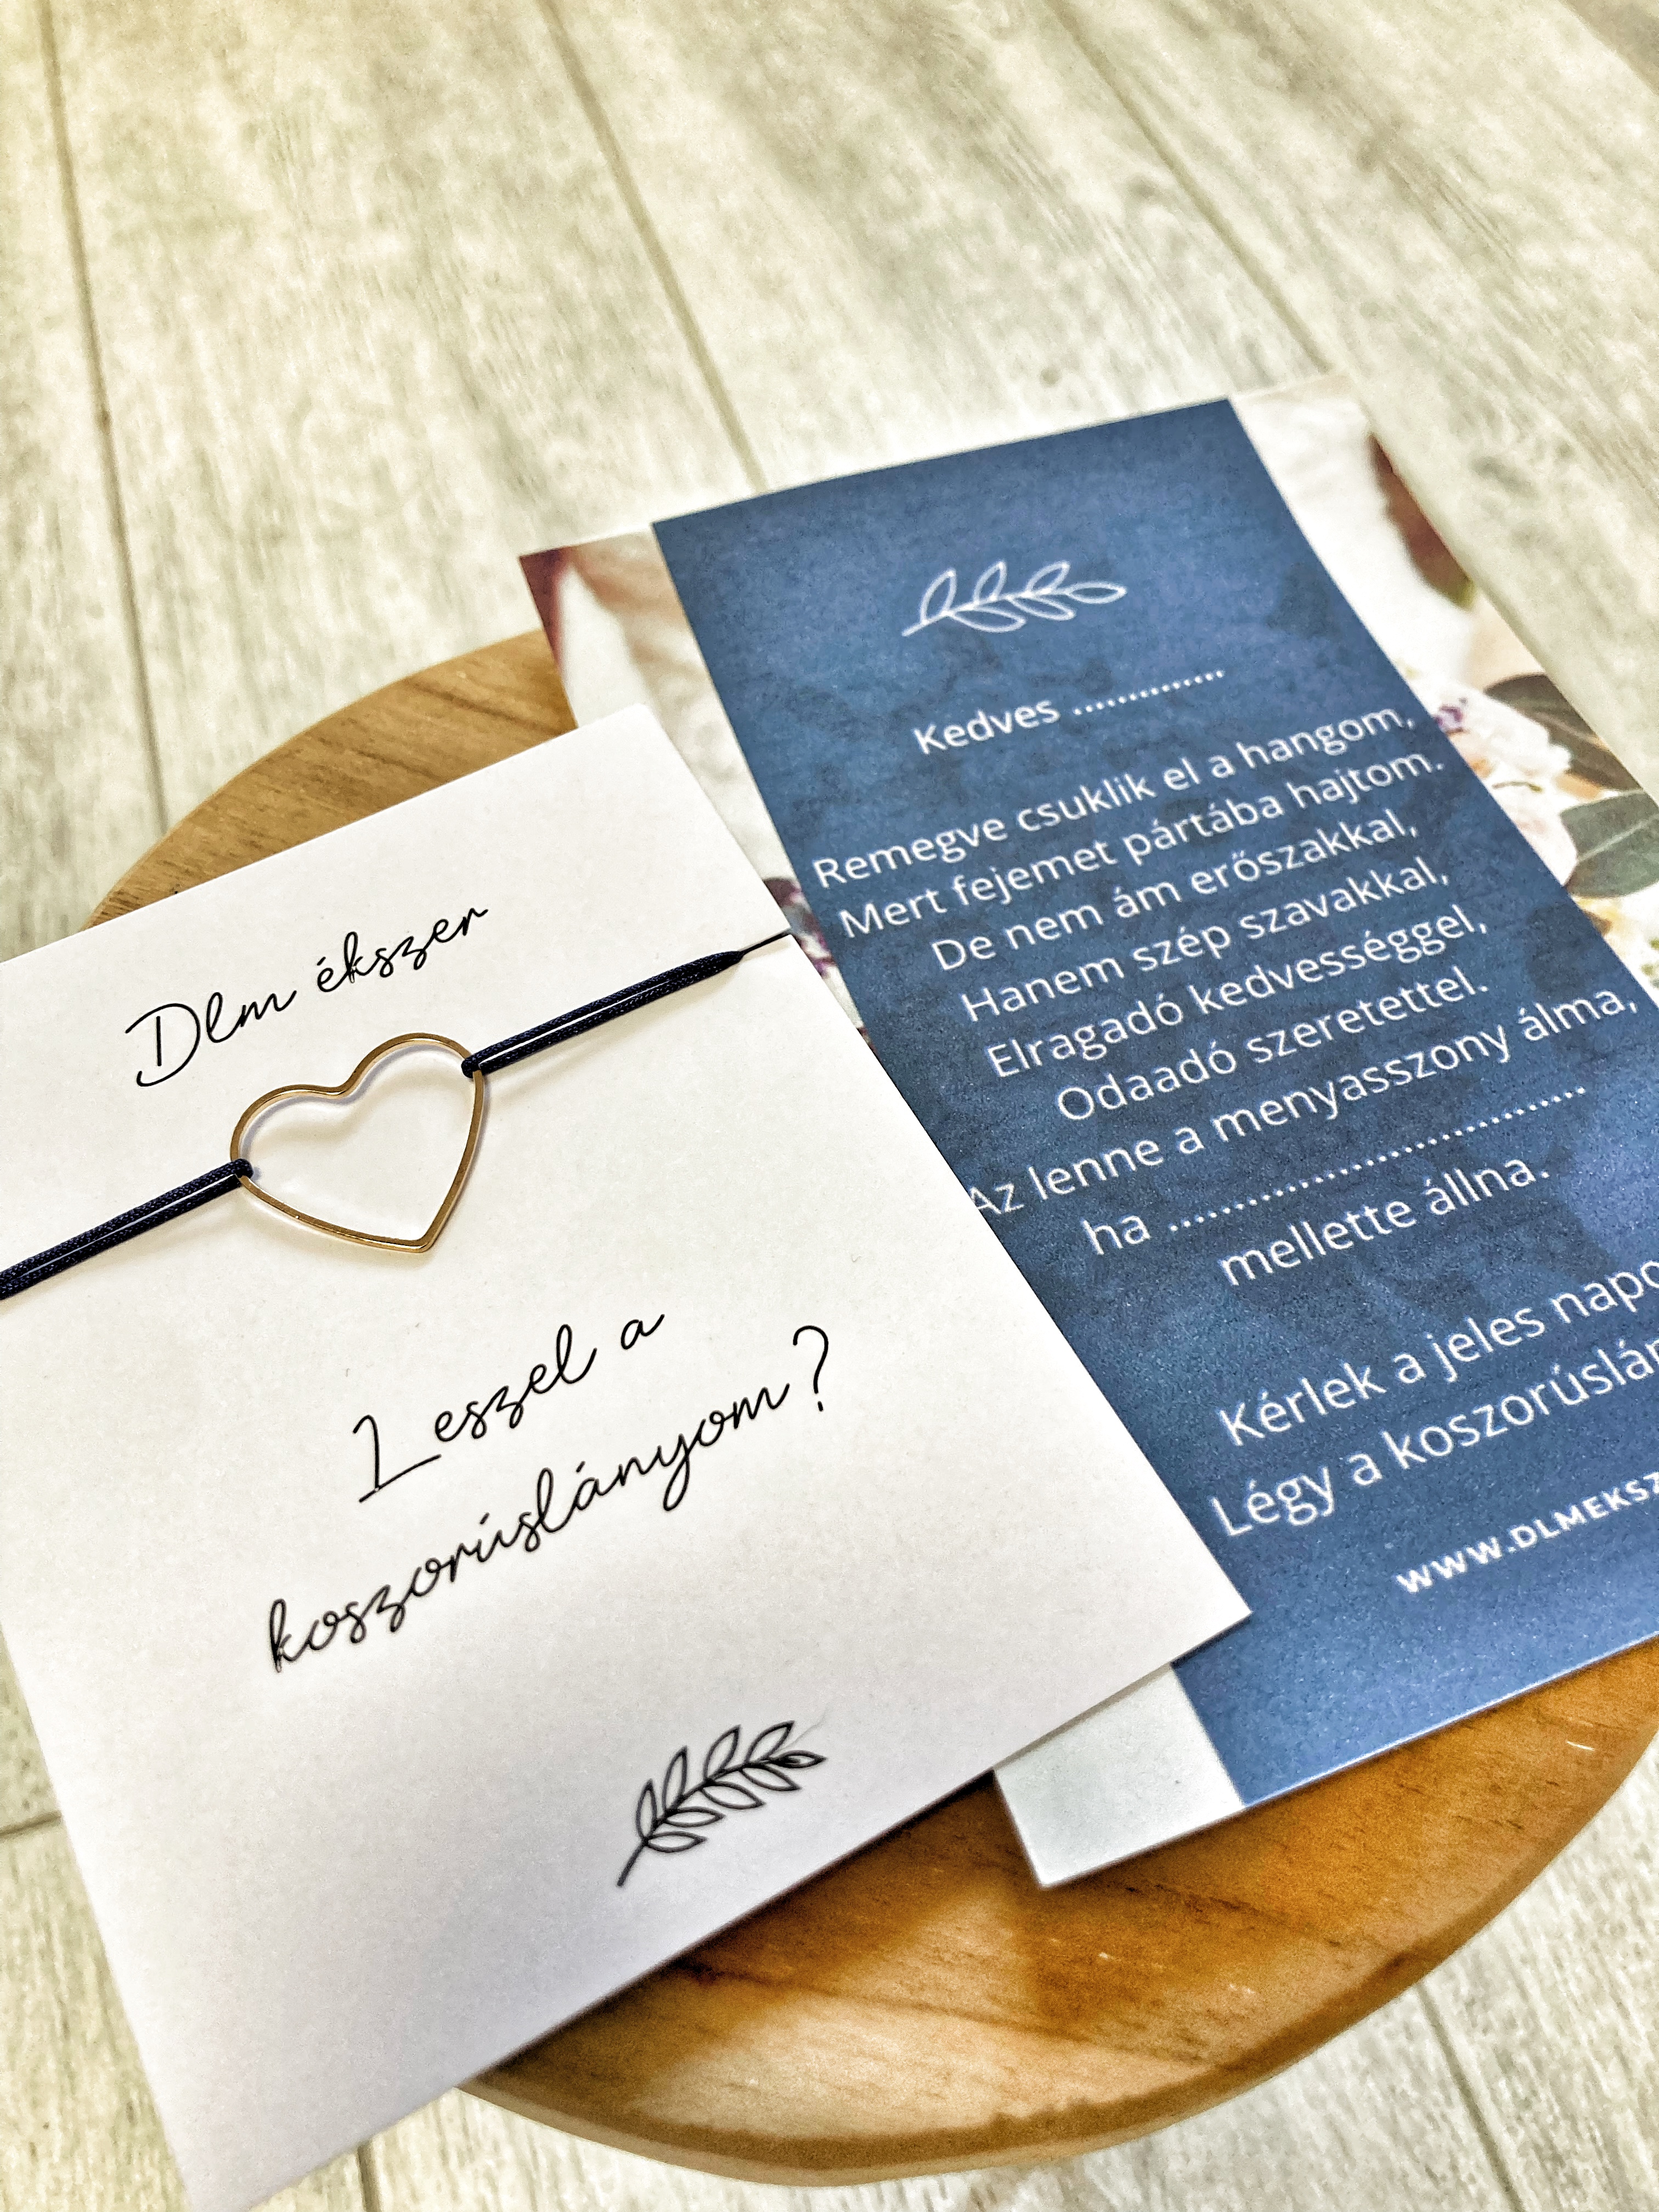 Dlm ékszer
Leszel a
koszorúslányom?
Kedves ..............
Remegve csuklik el a hangom,
Mert fejemet pártába hajtom.
De nem ám erőszakkal,
Hanem szép szavakkal,
Elragadó kedvességgel,
Odaadó szeretettel.
Az lenne a menyasszony álma,
ha ........................................
mellette állna.
Kérlek a jeles
Légy a